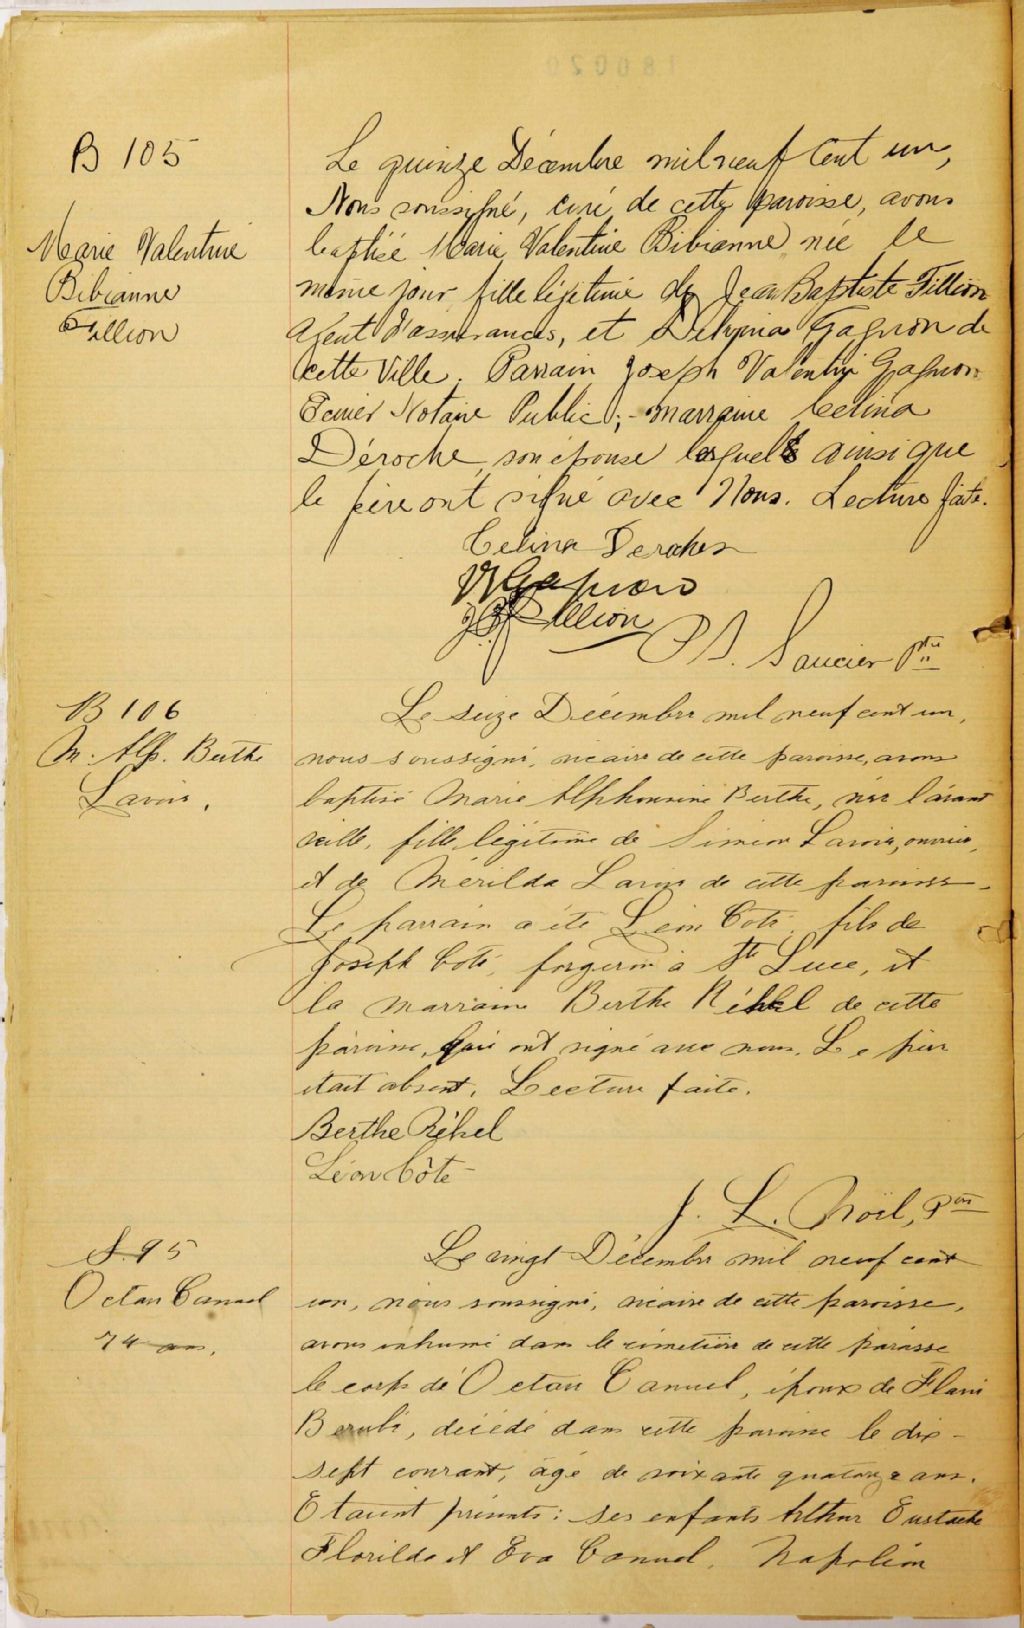 B 105
Marie Valentine
Bibianne
Fillion
Le quinze Décembre mil neuf cent un,
Nous soussigné, curé de cette paroisse, avons
baptisé Marie Valentine Bibianne née le
même jour fille légitime de Jean Baptiste Fillion
Agent d'assurances, et Delvina Gagnon de
cette Ville. Parrain Joseph Valentin Gagnon
Ecuier Notaire Public; marraine Celina
Déroche, son épouse lesquels ainsi que
le père ont signé avec Nous. Lecture faite.
Celina Deroches
V Gagnon
J B Fillion
Saucier Ptre
B 106
M. Alp. Berthe
Lavoie,
Le seize Décembre mil neuf cent un,
nous soussigné, vicaire de cette paroisse, avons
baptisé Marie Alphonsine Berthe, née l'avant
veille, fille légitime de Siméon Lavoie, ouvrier,
et de Mérilda Lavoie de cette paroisse.
Le parrain a été Léon Coté, fils de
Joseph Coté, forgeron à Ste Luce, et
la marraine Berthe Réhel de cette
paroisse, qui ont signé avec nous. Le père
était absent. Lecture faite.
Berthe Réhel
Léon Côté
J. L. Noël, Ptre
S. 95
Octau Canuel
74 ans.
Le vingt Décembre mil neuf cent
un, nous soussigné, vicaire de cette paroisse,
avons inhumé dans le cimetière de cette paroisse
le corps de Octau Canuel, époux de Flavie
Berubé, décédé dans cette paroisse le dix-
sept courant, âgé de soixante quatorze ans.
Etaient présents: ses enfants Arthur Eustache
Florilda et Eva Canuel, Napoléon